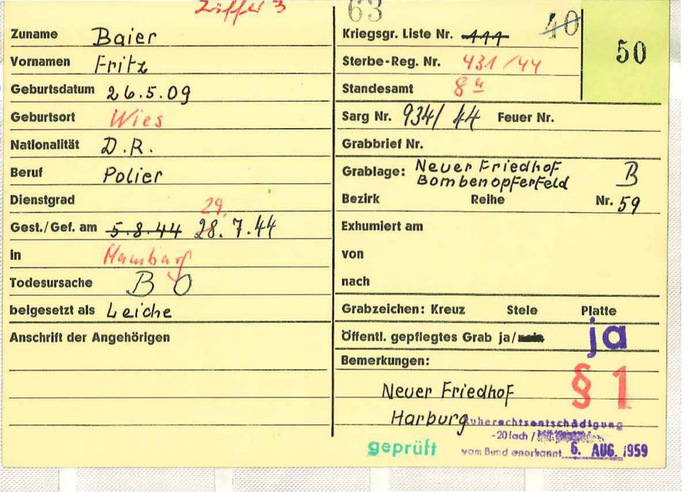 Ziffer 3
63
Zuname Baier
Kriegsgr. Liste Nr. 111 40
50
Vornamen Fritz
Sterbe-Reg. Nr. 431/44
Geburtsdatum 26.5.09
Standesamt 8a
Geburtsort Wies
Sarg Nr. 934/44 Feuer Nr.
Nationalität D.R.
Grabbrief Nr.
Beruf Polier
Grablage: Neuer Friedhof B
Bombenopferfeld
Dienstgrad
Bezirk Reihe Nr. 59
29.
Gest./Gef. am 5.8.44 28.7.44
Exhumiert am
in Hamburg
von
Todesursache BO
nach
beigesetzt als Leiche
Grabzeichen: Kreuz Stele Platte
Anschrift der Angehörigen
Öffentl. gepflegtes Grab ja/nein ja
Bemerkungen:
§ 1
Neuer Friedhof
Harburg
Ruherechtsentschädigung
-20fach /
geprüft
vom Bund anerkannt 6. AUG. 1959